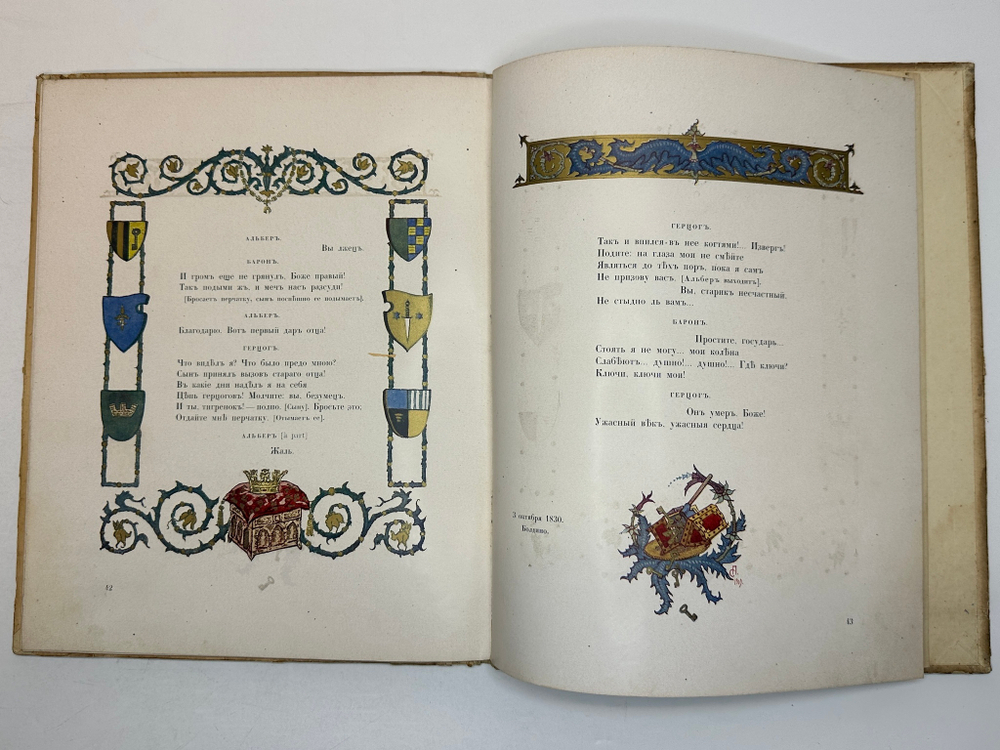 АЛЬБЕРЪ.
Вы лжецъ.
БАРОНЪ.
И громъ еще не грянулъ, Боже правый!
Такъ подыми жъ, и мечъ насъ разсуди!
[Бросаетъ перчатку, сынъ поспѣшно ее подымаетъ].
АЛЬБЕРЪ.
Благодарю. Вотъ первый даръ отца!
ГЕРЦОГЪ.
Что видѣлъ я? Что было предо мною?
Сынъ принялъ вызовъ стараго отца!
Въ какіе дни надѣлъ я на себя
Цѣпь герцоговъ! Молчите: вы, безумецъ,
И ты, тигренокъ! — полно. [Сыну]. Бросьте это;
Отдайте мнѣ перчатку. [Отымаетъ ее].
АЛЬБЕРЪ [à part]
Жаль.
42
ГЕРЦОГЪ.
Такъ и впился-въ нее когтями!... Извергъ!
Подите: на глаза мои не смѣйте
Являться до тѣхъ поръ, пока я самъ
Не призову васъ. [Альберъ выходитъ].
Вы, старикъ несчастный,
Не стыдно ль вамъ...
БАРОНЪ.
Простите, государь...
Стоять я не могу... мои колѣна
Слабѣютъ... душно!... душно!... Гдѣ ключи?
Ключи, ключи мои!
ГЕРЦОГЪ.
Онъ умеръ. Боже!
Ужасный вѣкъ, ужасныя сердца!
3 октября 1830.
Болдино.
43